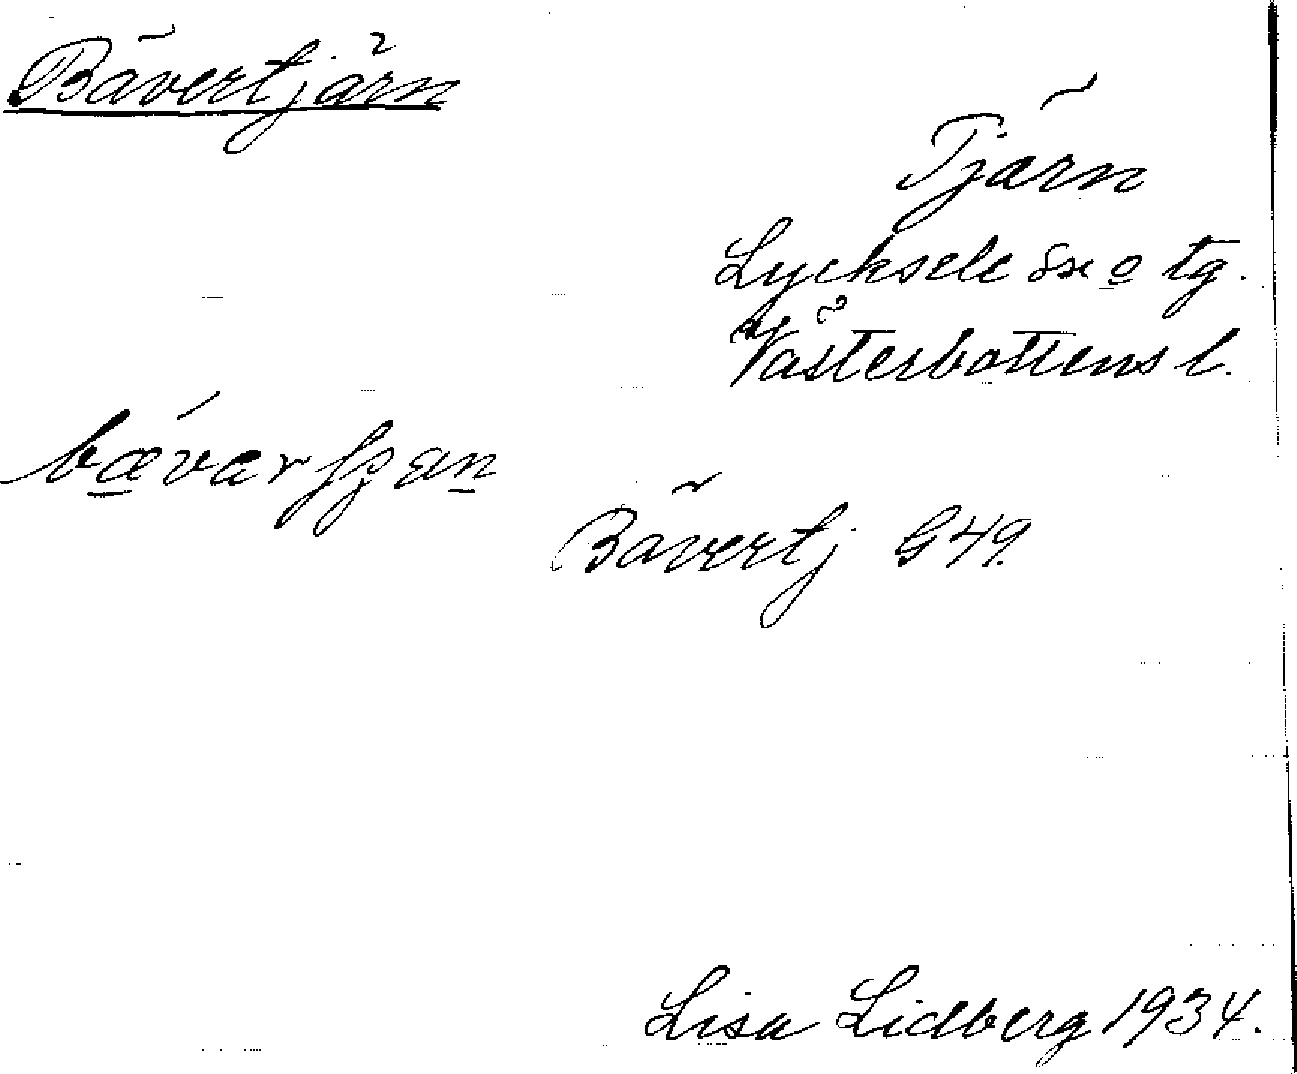 Bävertjärn
Tjärn
Lycksele sn o tg.
Västerbottens l.
bævar
Bävertj G49.
Lisa Lidberg 1934.